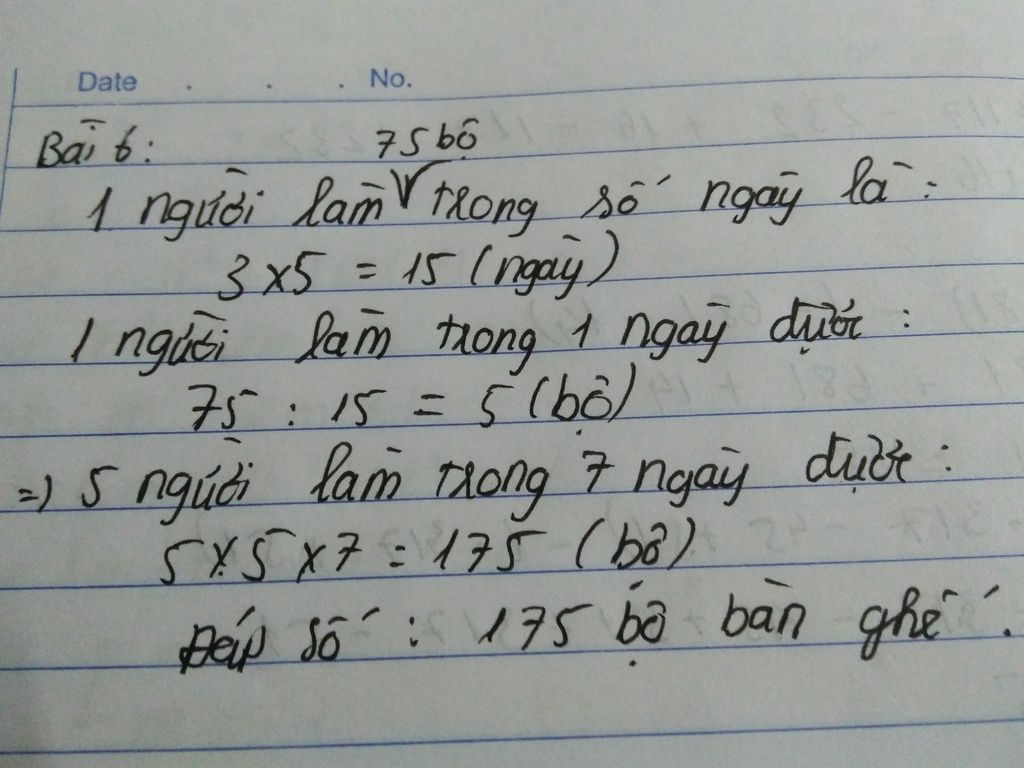 Date . . . No.
Bài 6:
1 người làm 75 bộ trong số ngày là:
3 x 5 = 15 (ngày)
1 người làm trong 1 ngày được:
75 : 15 = 5 (bộ)
=) 5 người làm trong 7 ngày được:
5 x 5 x 7 = 175 (bộ)
Đáp số : 175 bộ bàn ghế.